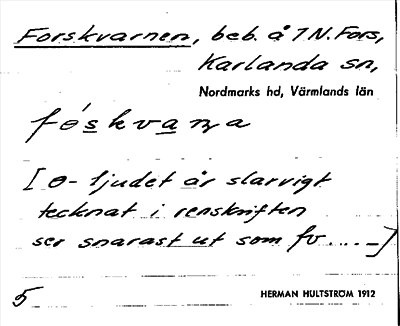 Forskvarnen, beb. å 7 N. Fors,
Karlanda sn,
Nordmarks hd, Värmlands län
fɵ́skvaṇa
[ɵ-ljudet är slarvigt
tecknat i renskriften
ser snarast ut som fv....–]
5
HERMAN HULTSTRÖM 1912